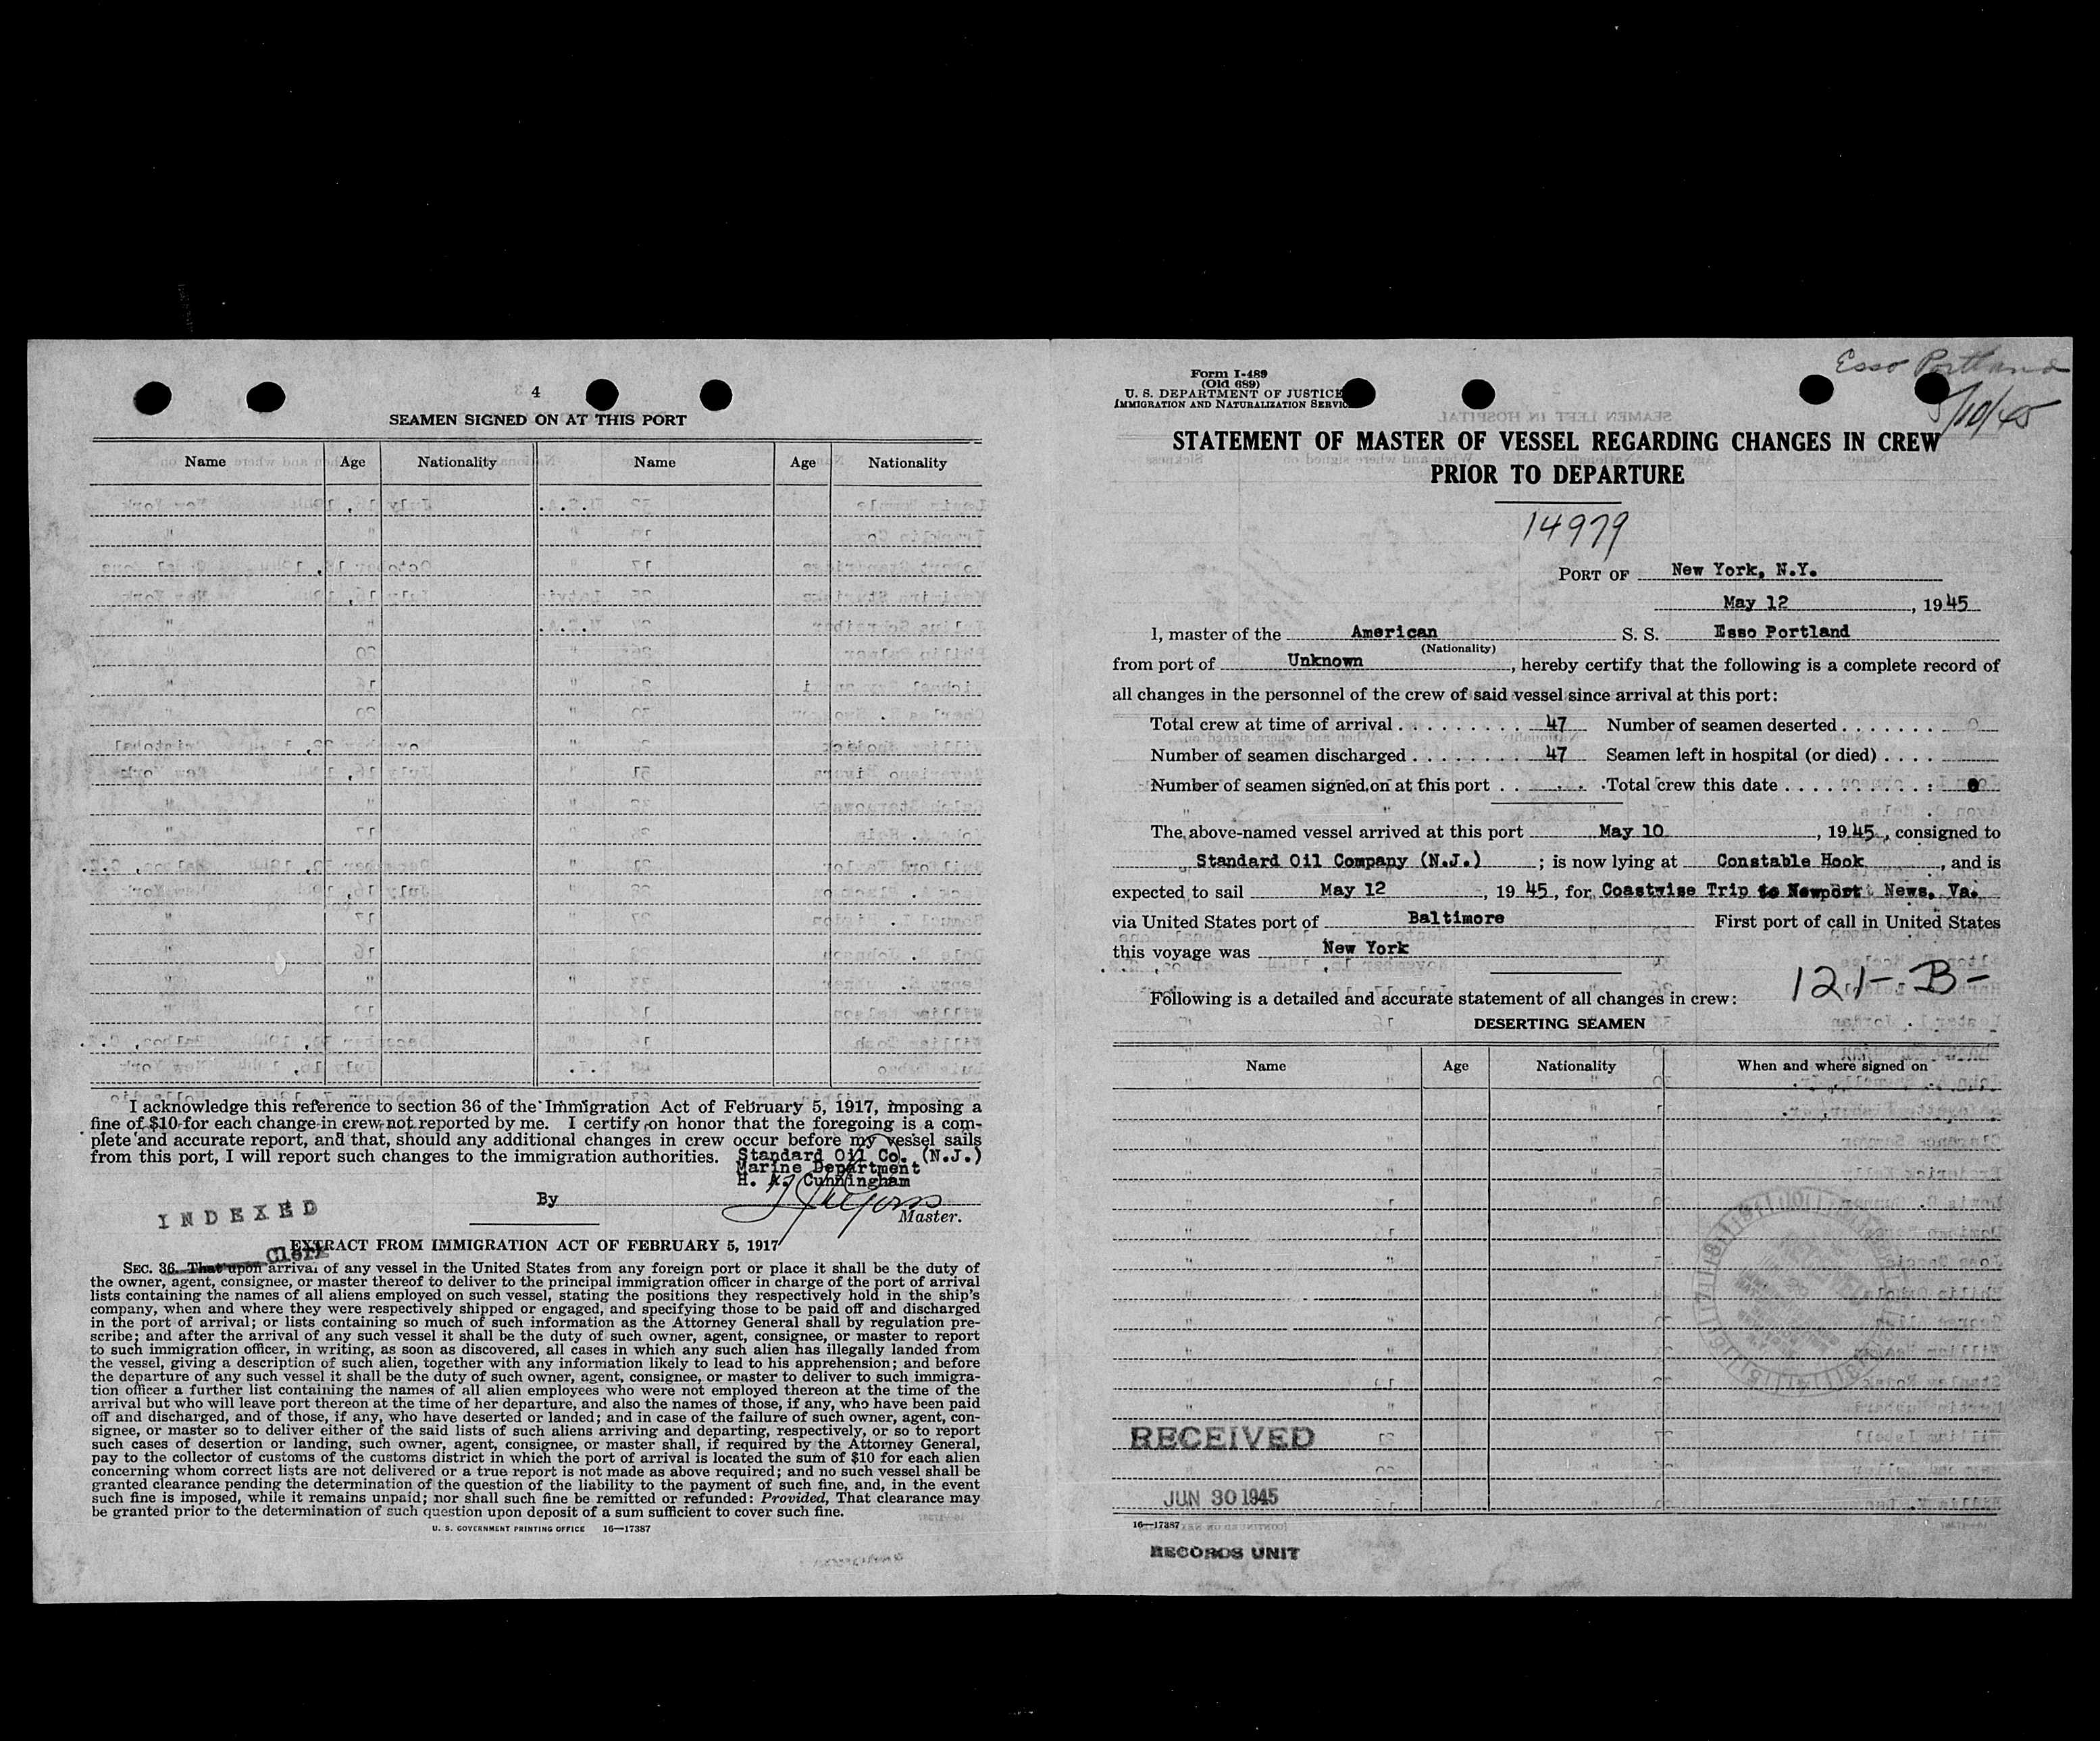 4
SEAMEN SIGNED ON AT THIS PORT
Name Age Nationality Name Age Nationality
I acknowledge this reference to section 36 of the Immigration Act of February 5, 1917, imposing a
fine of $10 for each change in crew not reported by me. I certify on honor that the foregoing is a com-
plete and accurate report, and that, should any additional changes in crew occur before my vessel sails
from this port, I will report such changes to the immigration authorities. Standard Oil Co. (N.J.)
Marine Department
H. A. Cunningham
By
Master.
INDEXED
Clerk
EXTRACT FROM IMMIGRATION ACT OF FEBRUARY 5, 1917
SEC. 36. That upon arrival of any vessel in the United States from any foreign port or place it shall be the duty of
the owner, agent, consignee, or master thereof to deliver to the principal immigration officer in charge of the port of arrival
lists containing the names of all aliens employed on such vessel, stating the positions they respectively hold in the ship's
company, when and where they were respectively shipped or engaged, and specifying those to be paid off and discharged
in the port of arrival; or lists containing so much of such information as the Attorney General shall by regulation pre-
scribe; and after the arrival of any such vessel it shall be the duty of such owner, agent, consignee, or master to report
to such immigration officer, in writing, as soon as discovered, all cases in which any such alien has illegally landed from
the vessel, giving a description of such alien, together with any information likely to lead to his apprehension; and before
the departure of any such vessel it shall be the duty of such owner, agent, consignee, or master to deliver to such immigra-
tion officer a further list containing the names of all alien employees who were not employed thereon at the time of the
arrival but who will leave port thereon at the time of her departure, and also the names of those, if any, who have been paid
off and discharged, and of those, if any, who have deserted or landed; and in case of the failure of such owner, agent, con-
signee, or master so to deliver either of the said lists of such aliens arriving and departing, respectively, or so to report
such cases of desertion or landing, such owner, agent, consignee, or master shall, if required by the Attorney General,
pay to the collector of customs of the customs district in which the port of arrival is located the sum of $10 for each alien
concerning whom correct lists are not delivered or a true report is not made as above required; and no such vessel shall be
granted clearance pending the determination of the question of the liability to the payment of such fine, and, in the event
such fine is imposed, while it remains unpaid; nor shall such fine be remitted or refunded: Provided, That clearance may
be granted prior to the determination of such question upon deposit of a sum sufficient to cover such fine.
U. S. GOVERNMENT PRINTING OFFICE 16—17387
Form I-489
(Old 689)
U. S. DEPARTMENT OF JUSTICE
IMMIGRATION AND NATURALIZATION SERVICE
Esso Portland
5/10/45
STATEMENT OF MASTER OF VESSEL REGARDING CHANGES IN CREW
PRIOR TO DEPARTURE
14979
PORT OF New York, N.Y.
May 12, 1945
I, master of the American S. S. Esso Portland
(Nationality)
from port of Unknown, hereby certify that the following is a complete record of
all changes in the personnel of the crew of said vessel since arrival at this port:
Total crew at time of arrival . . . . . . . . . 47 Number of seamen deserted . . . . . . . 0
Number of seamen discharged . . . . . . . . 47 Seamen left in hospital (or died) . . . .
Number of seamen signed on at this port . . . . . Total crew this date . . . . . . . . . . 0
The above-named vessel arrived at this port May 10, 1945, consigned to
Standard Oil Company (N.J.); is now lying at Constable Hook, and is
expected to sail May 12, 1945, for Coastwise Trip to Newport News, Va.
via United States port of Baltimore First port of call in United States
this voyage was New York
121-B-
Following is a detailed and accurate statement of all changes in crew:
DESERTING SEAMEN
Name Age Nationality When and where signed on
RECEIVED
JUN 30 1945
16—17387
RECORDS UNIT